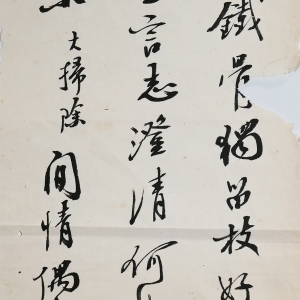 鐵骨獨留枝好
言志澄清何
大掃除 閒情偶